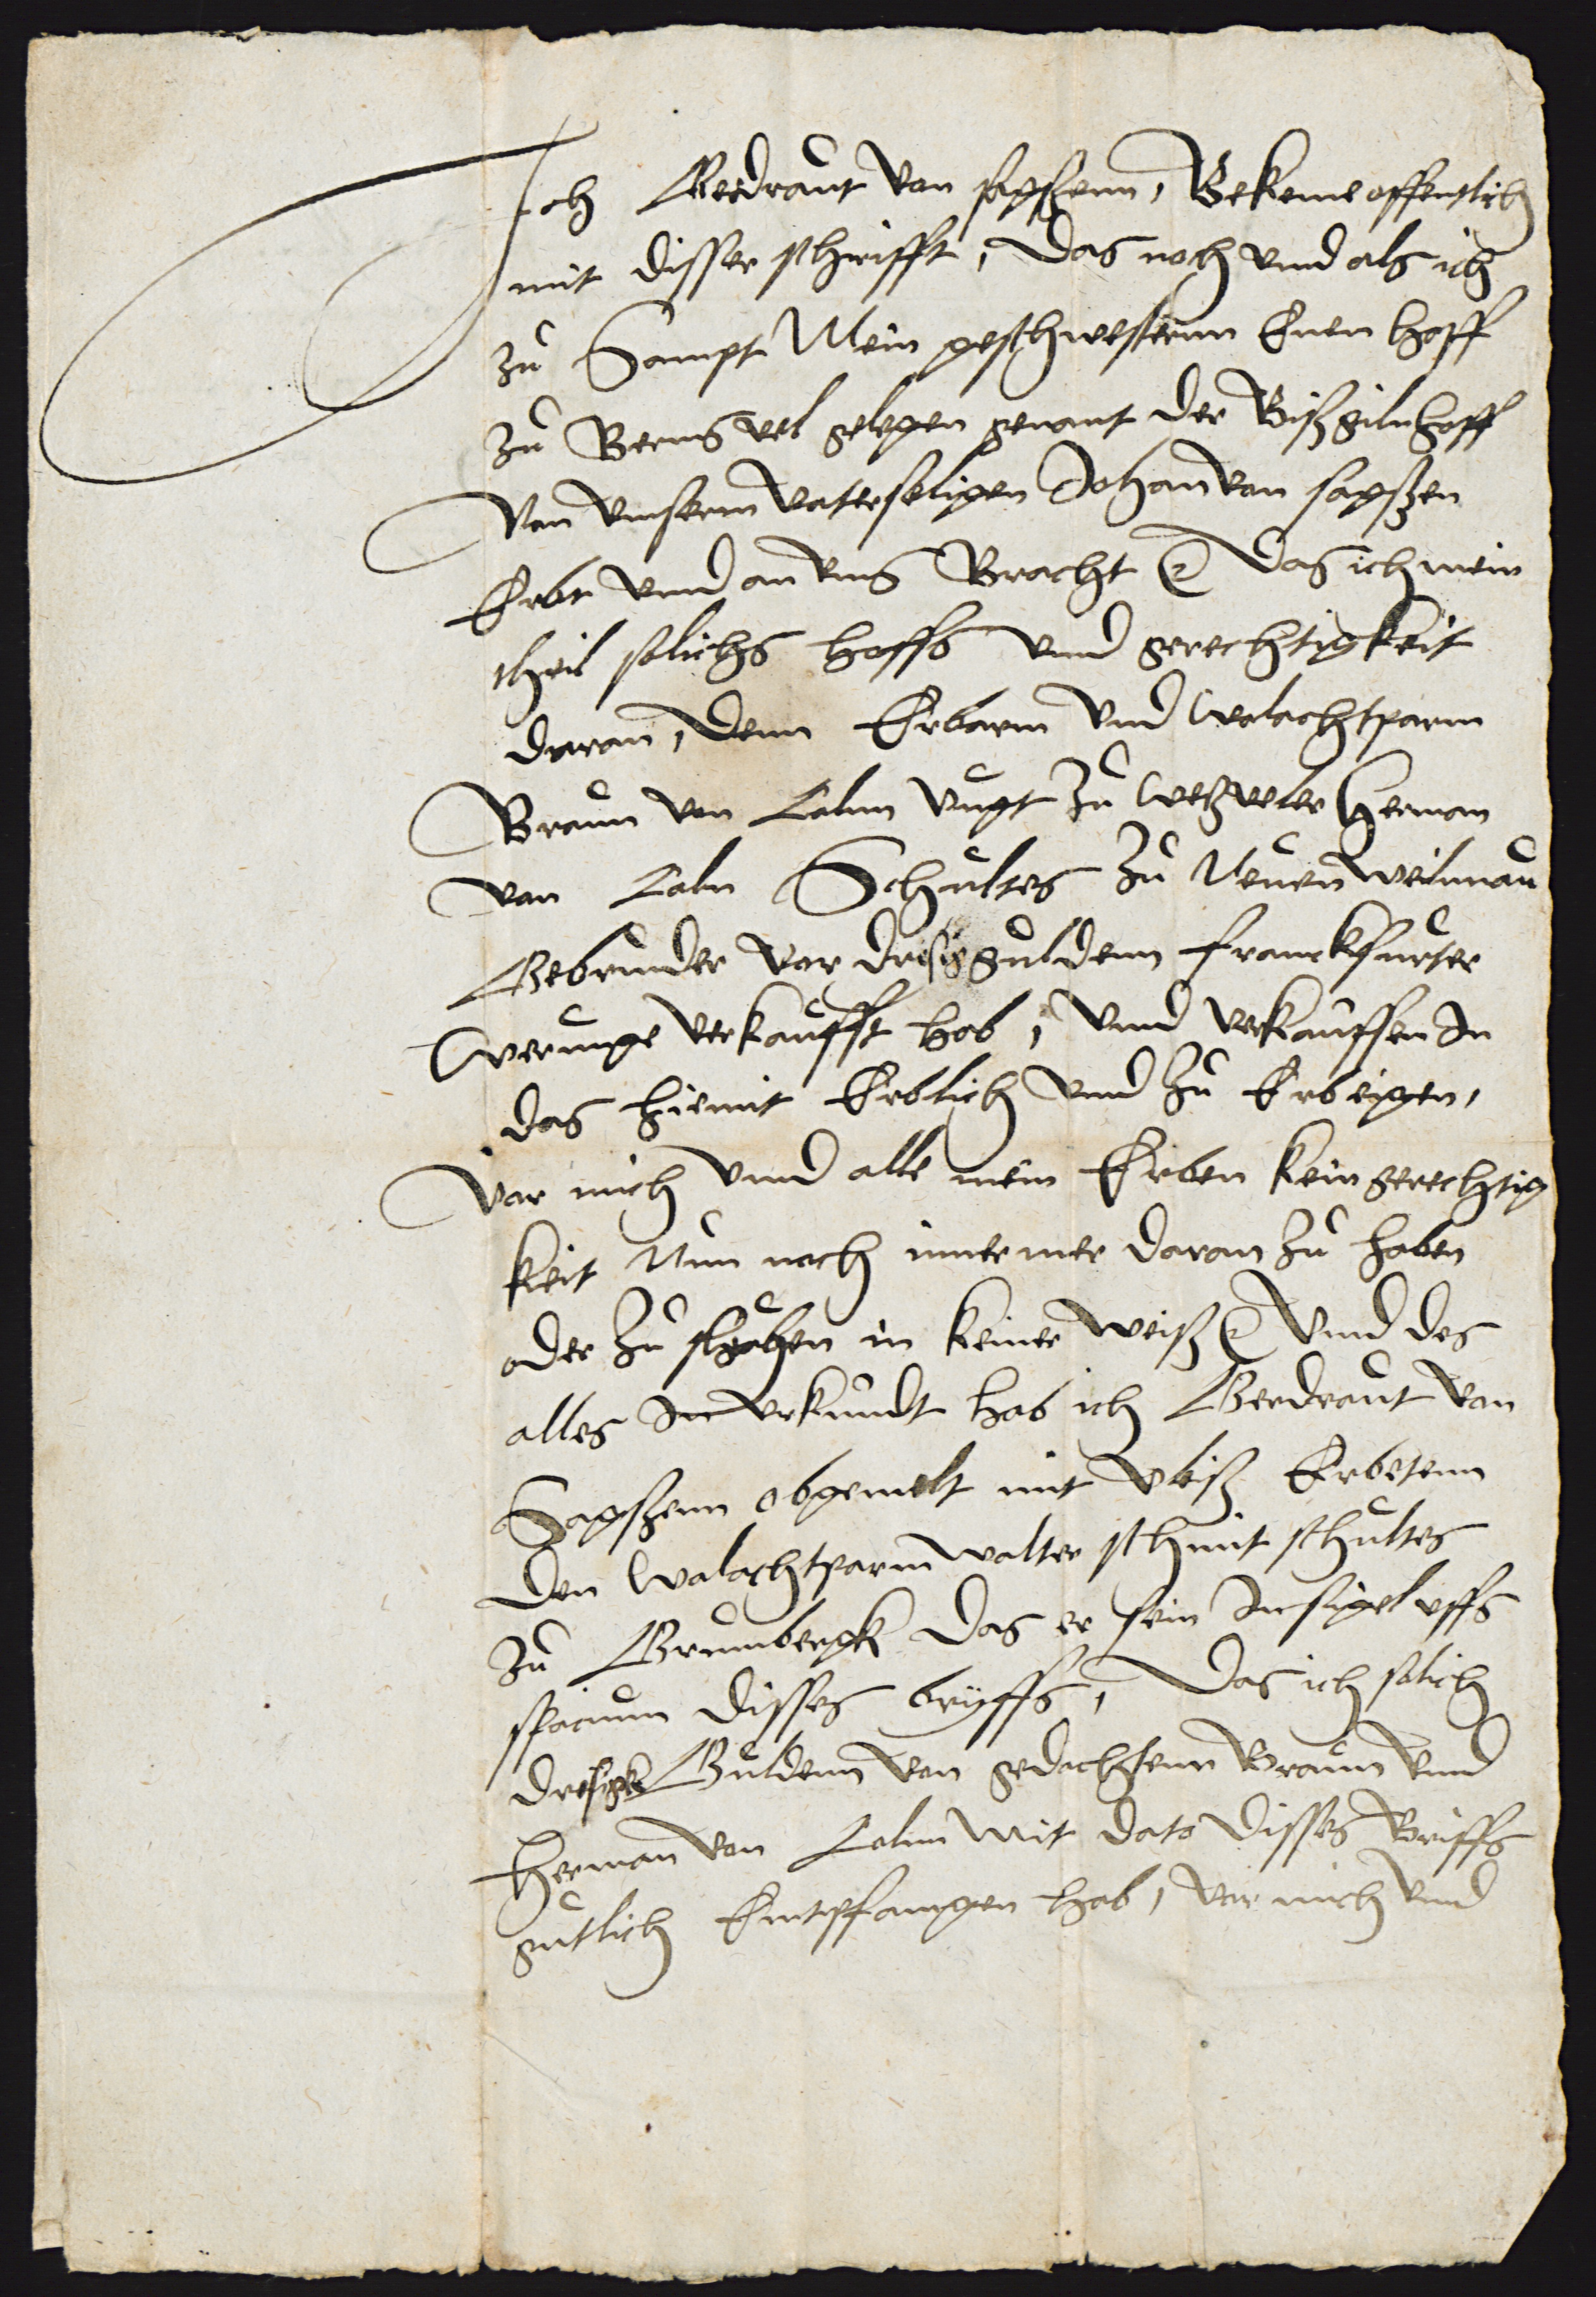 Ich Gerdraut von sapßenn, Bekenne offentlich
mit disser schriefft, das noch vnnd als ich
zu Sampt Mein geschwesternn Einen hoff
zu Berns vel gelegen genant der
Von vnserm vatter seligen Johan von sapßen
Erbt vnnd an vns Bracht das ich mein
theil solichs hoffs vnnd gerechtigkeit
daran, denn Erbarn vnd Wolachtparn
Braun von Calnn Vogt zu Herman
von Caln Schultes zu Neuen weilnau
Gebruder vor drisig guldenn franckfurter
Werunge verkaufft hab, vnnd verkauffen In
das hiemit Erblich vnnd zu Erb eigen,
Vor mich vnnd alle mein Erben kein gerechtig
keit Nun noch immermer daran zu haben
oder zu suchen in keiner weiß Vnnd des
alles In vrkundt hab ich Gerdraut von
Sapßenn obgemelt mit vleiß Erbetenn
den Wolachtparnn walter schmit schultes
zu Grunbergk das er sein Insigel vffs
spacium disses briffs, das ich solich
drisigk Guldenn von gedachtenn Braun vnnd
Herman von Calnn Mit dato disses Briffs
gutlich Entpfangen hab, vor mich vnnd